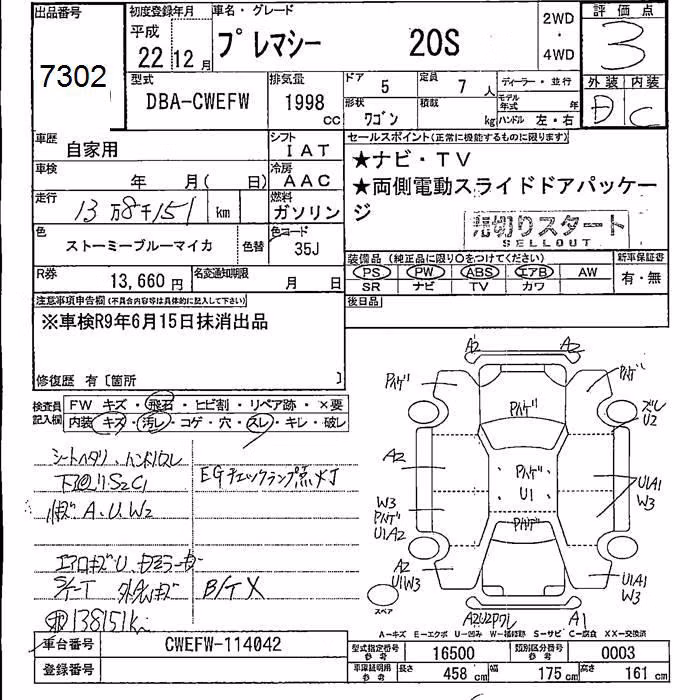 出品番号
7302
初度登録年月
平成
22年12月
車名・グレード
プレマシー 20S
2WD
・
4WD
評価点
3
外装 内装
D C
型式
DBA-CWEFW
排気量
1998
CC
ドア 5
定員 7 人
形状 ワゴン
積載 kg
ディーラー・並行
モデル年式 年
ハンドル 左・右
車歴
自家用
シフト
IAT
車検 年 月( 日)
冷房
AAC
走行
13万8千151 km
燃料
ガソリン
色
ストーミーブルーマイカ
色替
色コード
35J
R券
13,660円
名変通知期限
月 日
セールスポイント(正常に機能するものに限ります)
★ナビ・TV
★両側電動スライドドアパッケー
ジ
売切りスタート
SELLOUT
装備品(純正品に限り○をつけてください)
PS PW ABS エアB AW
SR ナビ TV カワ
新車保証書
有・無
後日品
注意事項申告欄(不具合内容等は具体的に記入して下さい)
※車検R9年6月15日抹消出品
修復歴 有〔箇所 〕
検査員
記入欄
FW キズ・飛石・ヒビ割・リペア跡・×要
内装 キズ・汚レ・コゲ・穴・スレ・キレ・破レ
シートヘタリ、ハンドルスレ
下廻リS2C1
EGチェックランプ点灯
A.U.W2
エアロキズU
外板キズ
B/TX
138151km
A2
A2
ハゲ
ハゲ
ハゲ
ズレ
U2
A2
ハゲ
U1
W3
ハゲ
U1A2
U1A1
W3
ハゲ
A2
U1W3
U1A1
W3
スペア
A2U2ワレ
A1
A－キズ E－エクボ U－凹み W－補修跡 S－サビ C－腐食 XX－交換済
車台番号
CWEFW-114042
登録番号
型式指定番号
参考
16500
類別区分番号
参考
0003
車庫証明用
参考
長さ 458 cm
幅 175 cm
高さ 161 cm